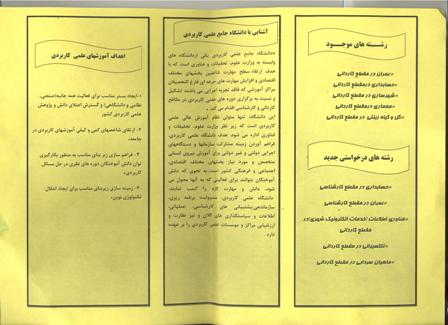 رشـــته های موجـــود
«عمران در مقطع کاردانی
«حسابداری در مقطع کاردانی
«شهرسازی در مقطع کاردانی
«معماری در مقطع کاردانی
«گل و گیاه زینتی در مقطع کاردانی
رشته های درخواستی جدید
«حسابداری در مقطع کارشناسی
«عمران در مقطع کارشناسی
«فناوری اطلاعات (خدمات الکترونیک شهری) در
مقطع کاردانی
«تاکسیرانی در مقطع کاردانی
«ماهیان سردابی در مقطع کاردانی
آشنایی با دانشگاه جامع علمی کاربردی
«دانشگاه جامع علمی کاربردی یکی از دانشگاه های
وابسته به وزارت علوم، تحقیقات و فناوری است که با
هدف ارتقاء سطح مهارت شاغلین بخشهای مختلف
اقتصادی و افزایش مهارت های حرفه ای فارغ التحصیلان
مراکز آموزشی که فاقد تجربه اجرایی می باشند تشکیل
و نسبت به برگزاری دوره های علمی کاربردی در مقاطع
کاردانی و کارشناسی اقدام می کند.
این دانشگاه، تنها متولی نظام آموزش عالی علمی
کاربردی است که زیر نظر وزارت علوم، تحقیقات و
فناوری اداره می شود. هدف دانشگاه علمی کاربردی
فراهم آوردن زمینه مشارکت سازمانها و دستگاههای
اجرایی دولتی و غیر دولتی برای آموزش نیروی انسانی
متخصص و مورد نیاز بخشهای مختلف اقتصادی،
اجتماعی و فرهنگی کشور است به نحوی که دانش
آموختگان بتوانند برای فعالیتی که به آنها محول می
شود، دانش و مهارت لازم را کسب نمایند.
دانشگاه علمی کاربردی، مسوولیت برنامه ریزی،
سازماندهی، پشتیبانی های کارشناسی، عملیاتی،
اطلاعات و سیاستگذاری های کلان و نیز نظارت و
ارزشیابی مراکز و موسسات علمی کاربردی را بر عهده
دارد.
اهداف آموزشهای علمی کاربردی
۱-ایجاد بستر مناسب برای فعالیت همه جانبه(صنعتی،
نظامی و دانشگاهی) و گسترش اعتلای دانش و پژوهش
علمی کاربردی کشور
۲- ارتقای شاخصهای کمی و کیفی آموزشهای کاربردی در
جامعه.
۳- فراهم سازی زیر بنای مناسب به منظور بکارگیری
توان دانش آموختگان دوره های نظری در حل مسائل
کاربردی.
۴- زمینه سازی زیربنای مناسب برای ایجاد انتقال
تکنولوژی نوین